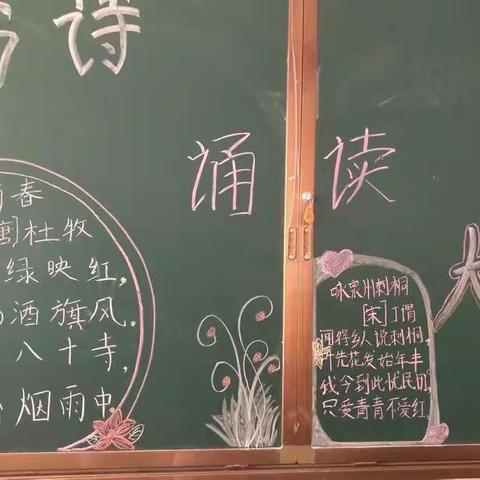 诗
诵读
春
唐]杜牧
绿映红,
酒旗风,
八十寺,
烟雨中.
咏泉州刺桐
[宋]丁谓
闻得乡人说刺桐,
叶先花发始年丰
我今到此忧民切,
只爱青青不爱红.